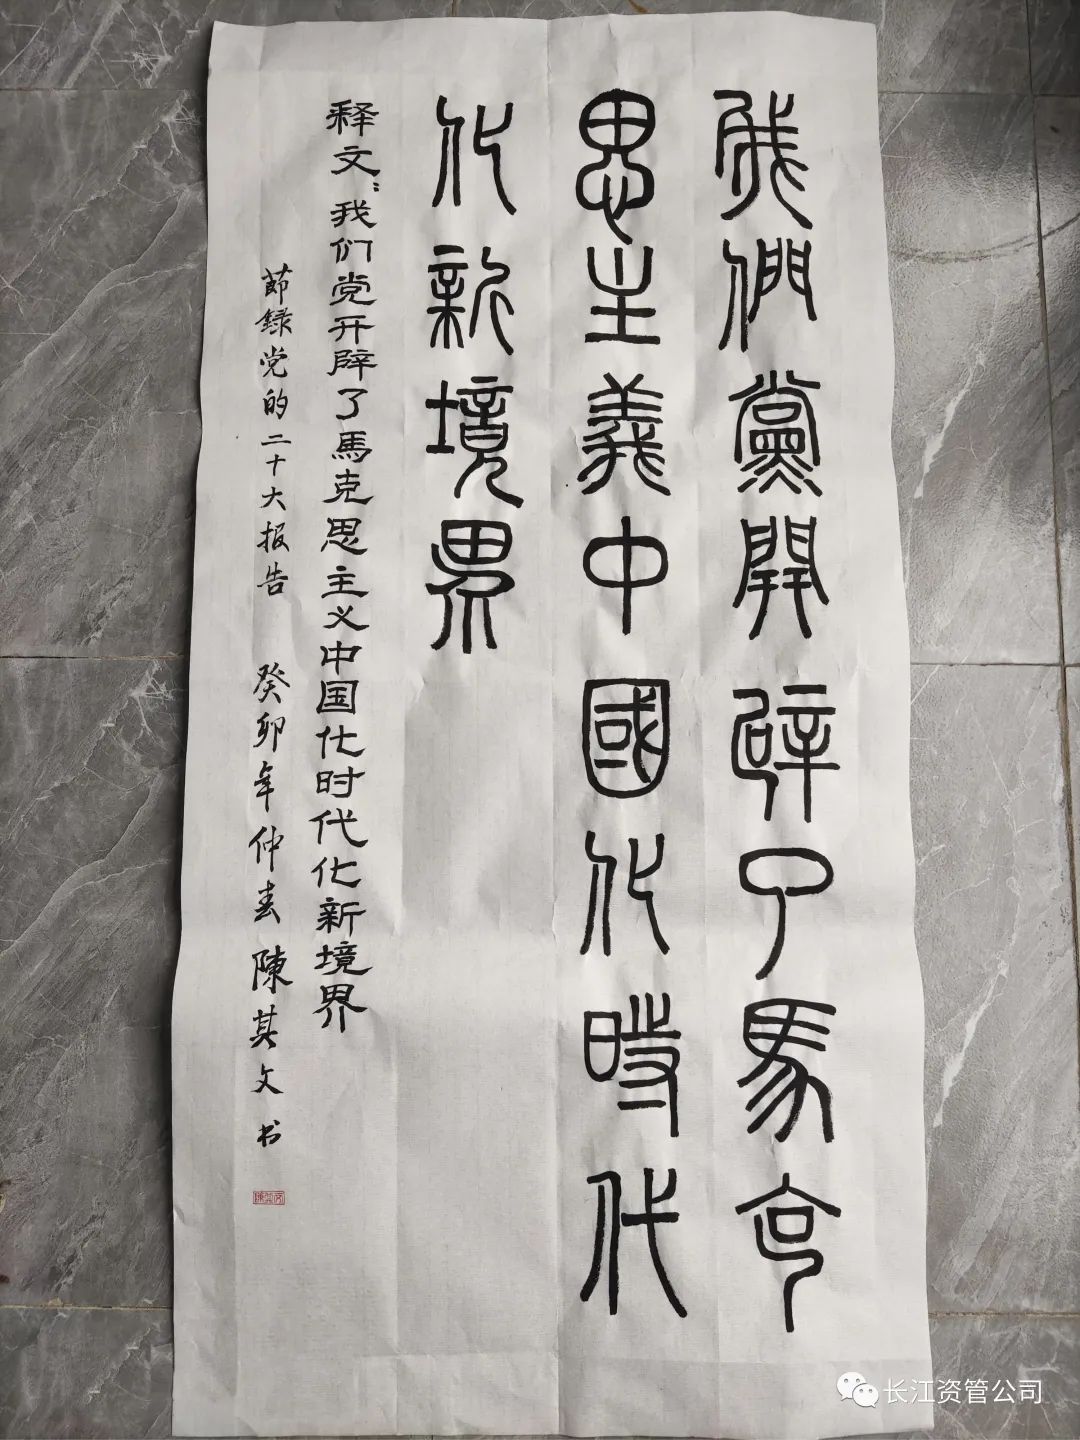 我們黨開辟了馬克
思主義中國化時代
化新境界
释文：我们党开辟了馬克思主义中国化时代化新境界
節録党的二十大报告 癸卯年仲春 陳其文书
长江资管公司